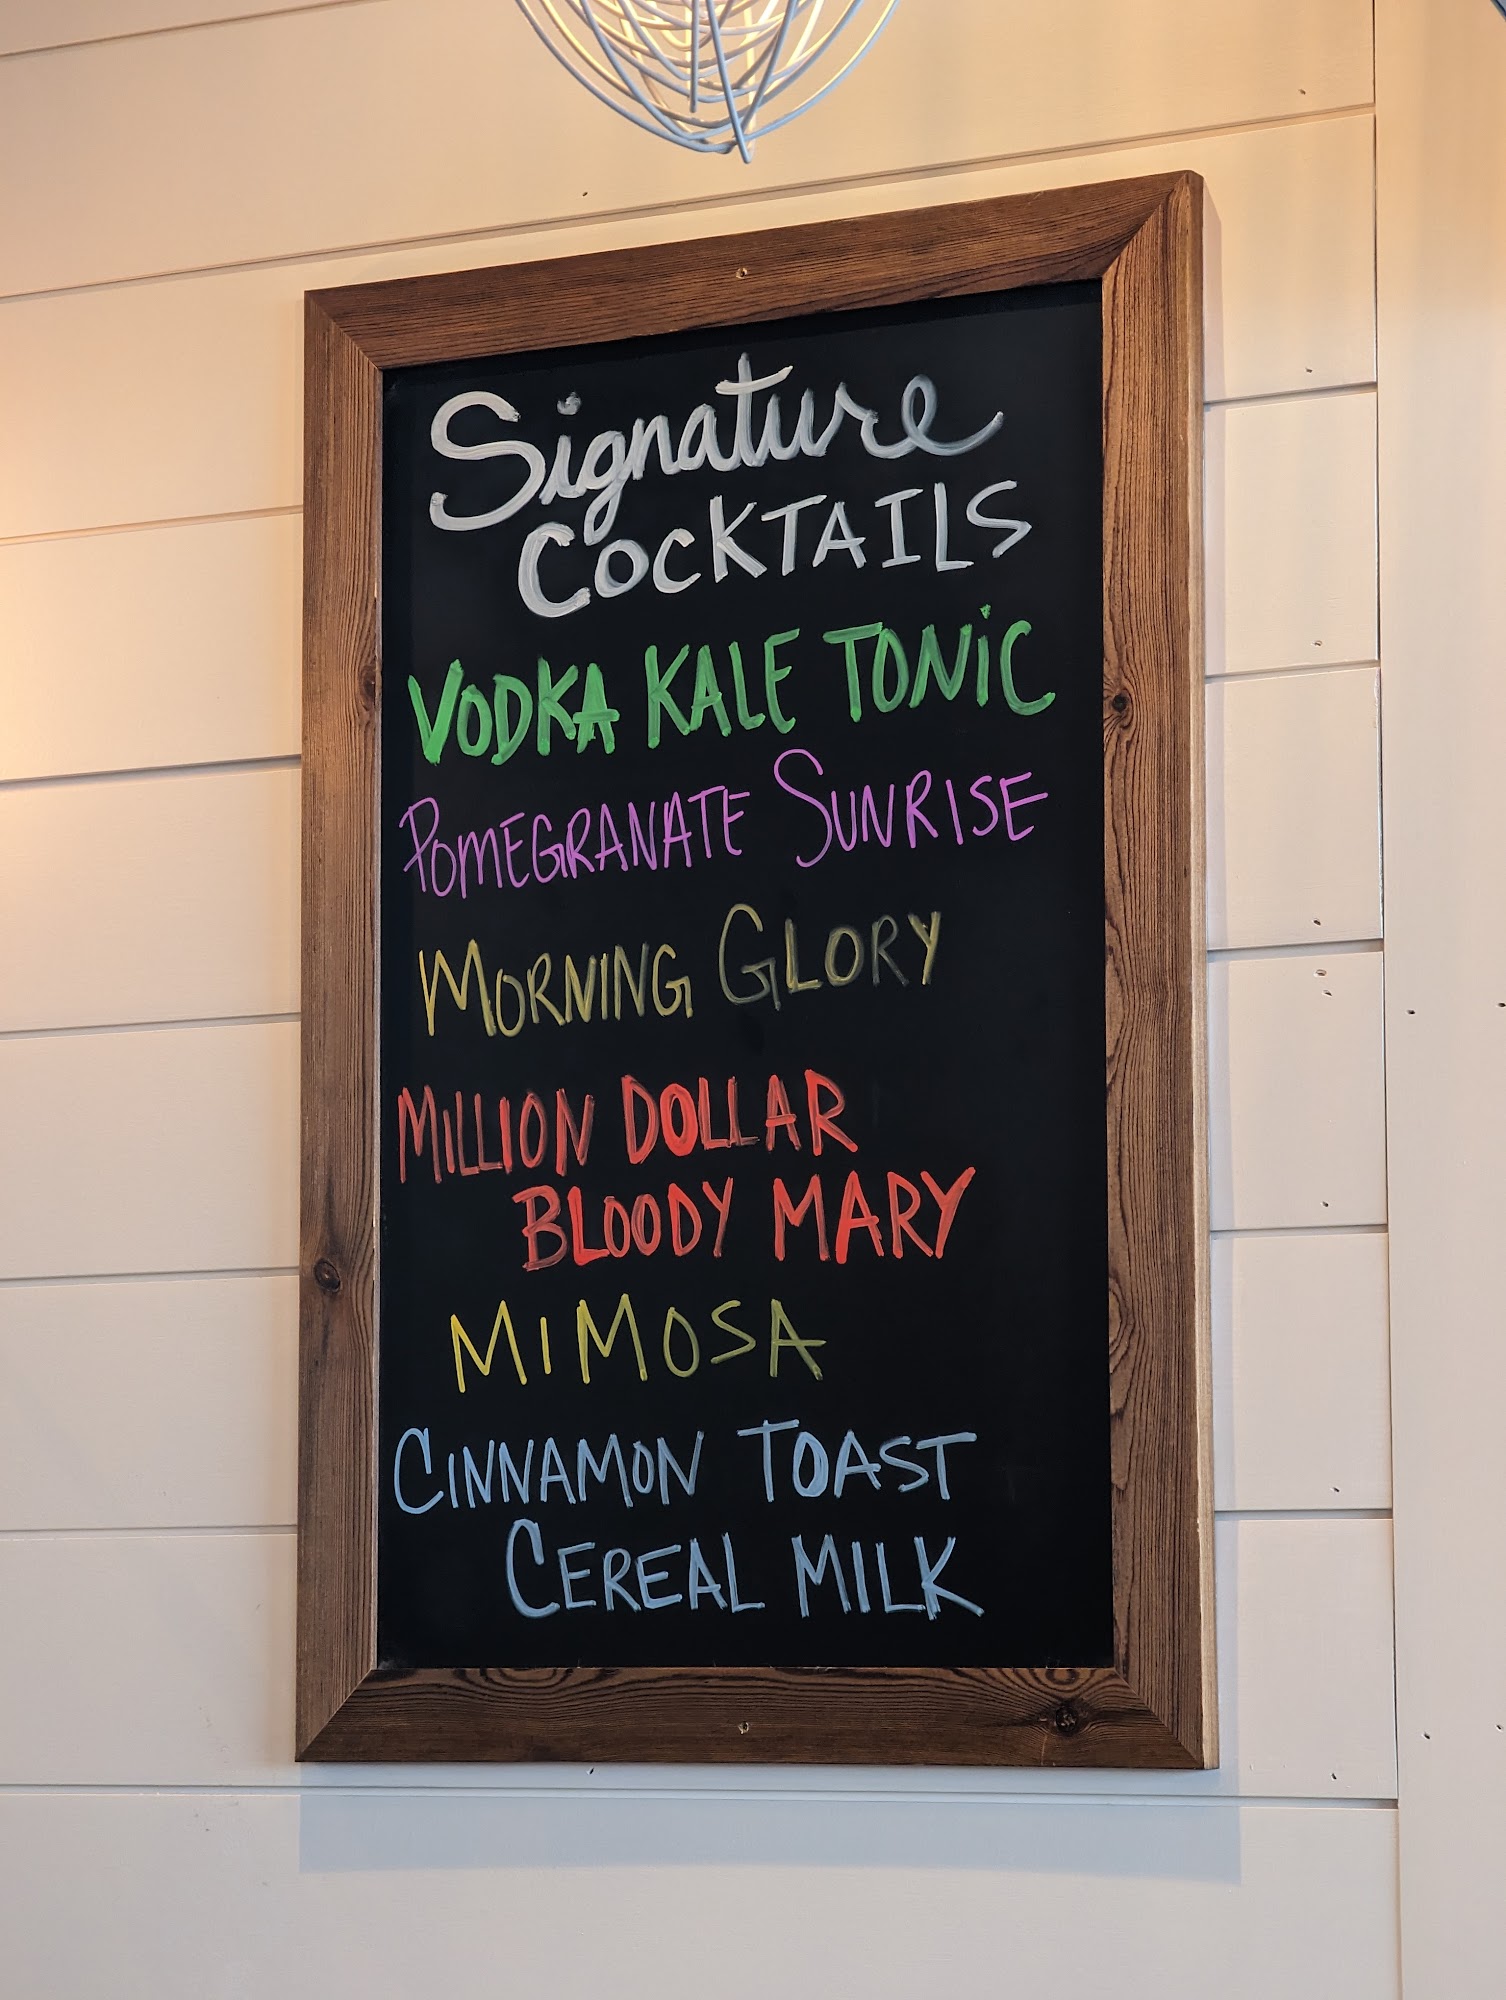 Signature
COCKTAILS
VODKA KALE TONiC
POMEGRANATE SUNRISE
MORNING GLORY
MILLION DOLLAR
BLOODY MARY
MIMOSA
CINNAMON TOAST
CEREAL MILK